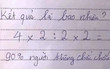 Kết quả là bao nhiêu?
4 × 2 : 2 × 2 =
90% người không chú